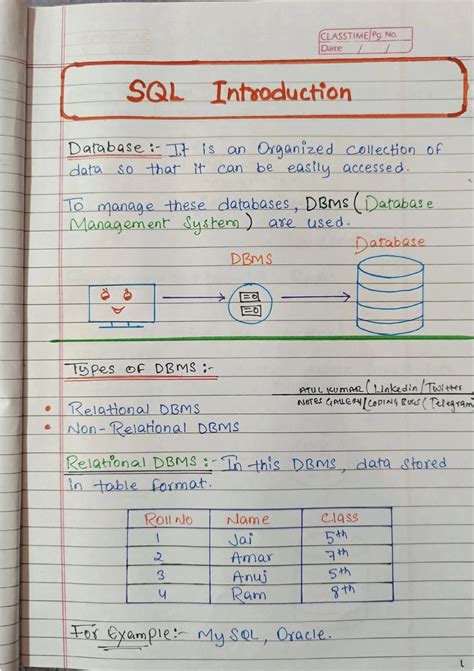 CLASSTIME Pg. No.
Date / /
SQL Introduction
Database :- It is an Organized collection of
data so that it can be easily accessed.
To manage these databases, DBMS ( Database
Management System ) are used.
Database
DBMS
Types of DBMS :-
ATUL KUMAR ( Linkedin / Twitter
NOTES GALLERY / CODING BUGS ( Telegram )
• Relational DBMS
• Non-Relational DBMS
Relational DBMS :- In this DBMS, data stored
in table format.
Roll No Name Class
1 Jai 5th
2 Amar 7th
3 Anuj 5th
4 Ram 8th
For Example :- MySQL, Oracle.
1